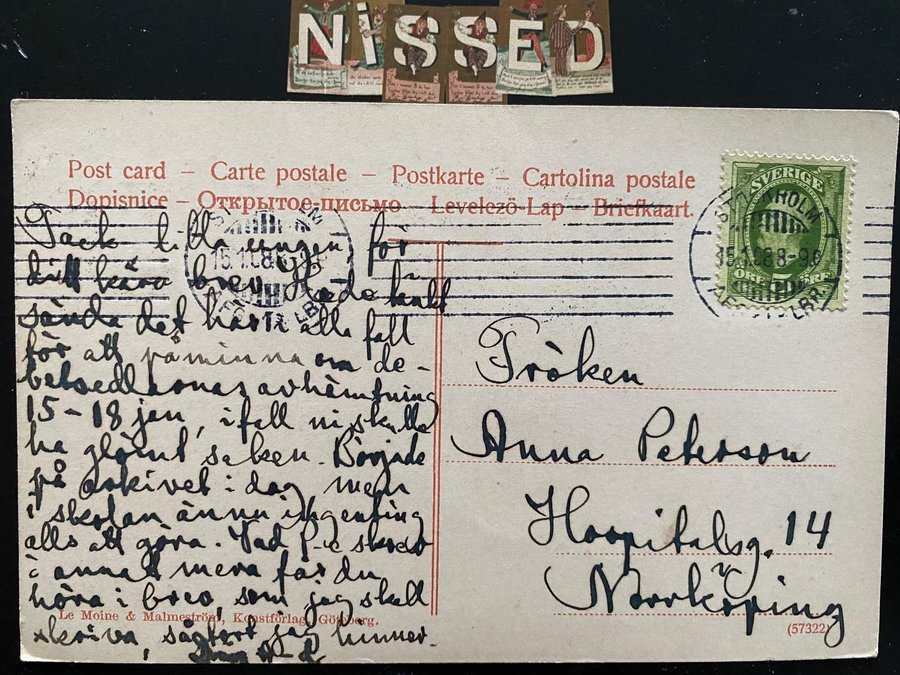 NiSSED
Post card – Carte postale – Postkarte – Cartolina postale
Dopisnice – Открытое-письмо – Levelező-Lap – Briefkaart.
SVERIGE
STOCKHOLM
15.1.08 8-9
Tack lilla ungen för
ditt kära brev. Hade tänkt
sända det här i alla fall
för att påminna om de-
betsedlarnas avhämtning
15–18 jan, ifall ni skulle
ha glömt saken. Började
på arkivet i dag men
i skolan ännu ingenting
alls att göra. Vad skrev
i annat mera får du
höra i brev, som jag skall
skriva, så fort jag hinner.
Fröken
Anna Peterson
Hospitalsg. 14
Norrköping
Le Moine & Malmeström, Konstförlag, Göteborg.
(57322)